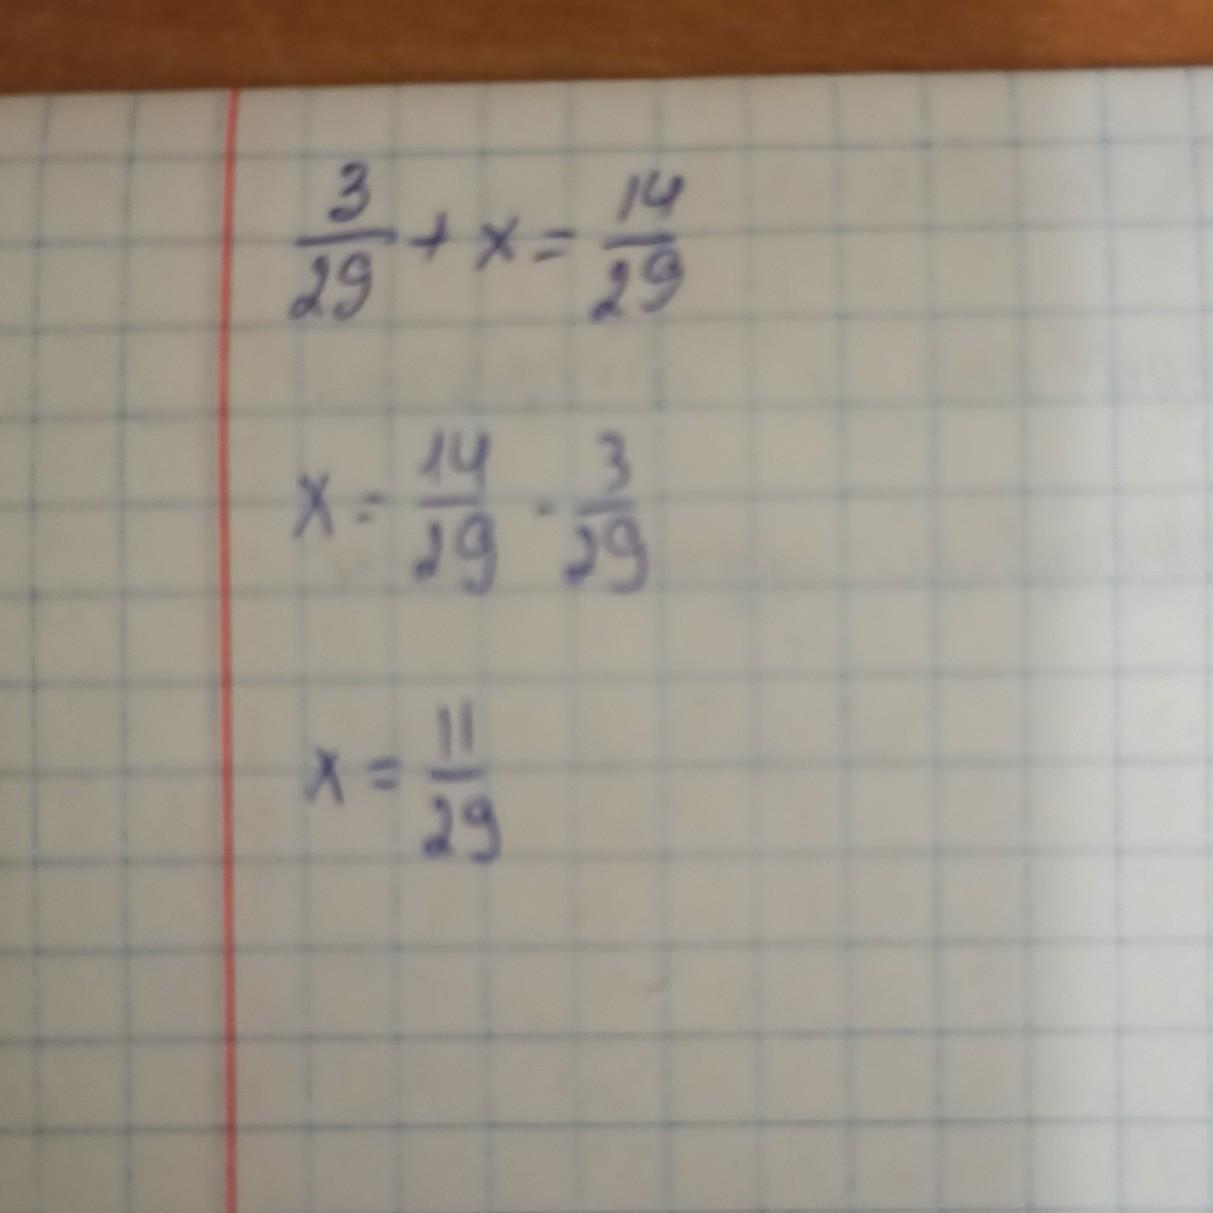 3/29 + x = 14/29
x = 14/29 - 3/29
x = 11/29